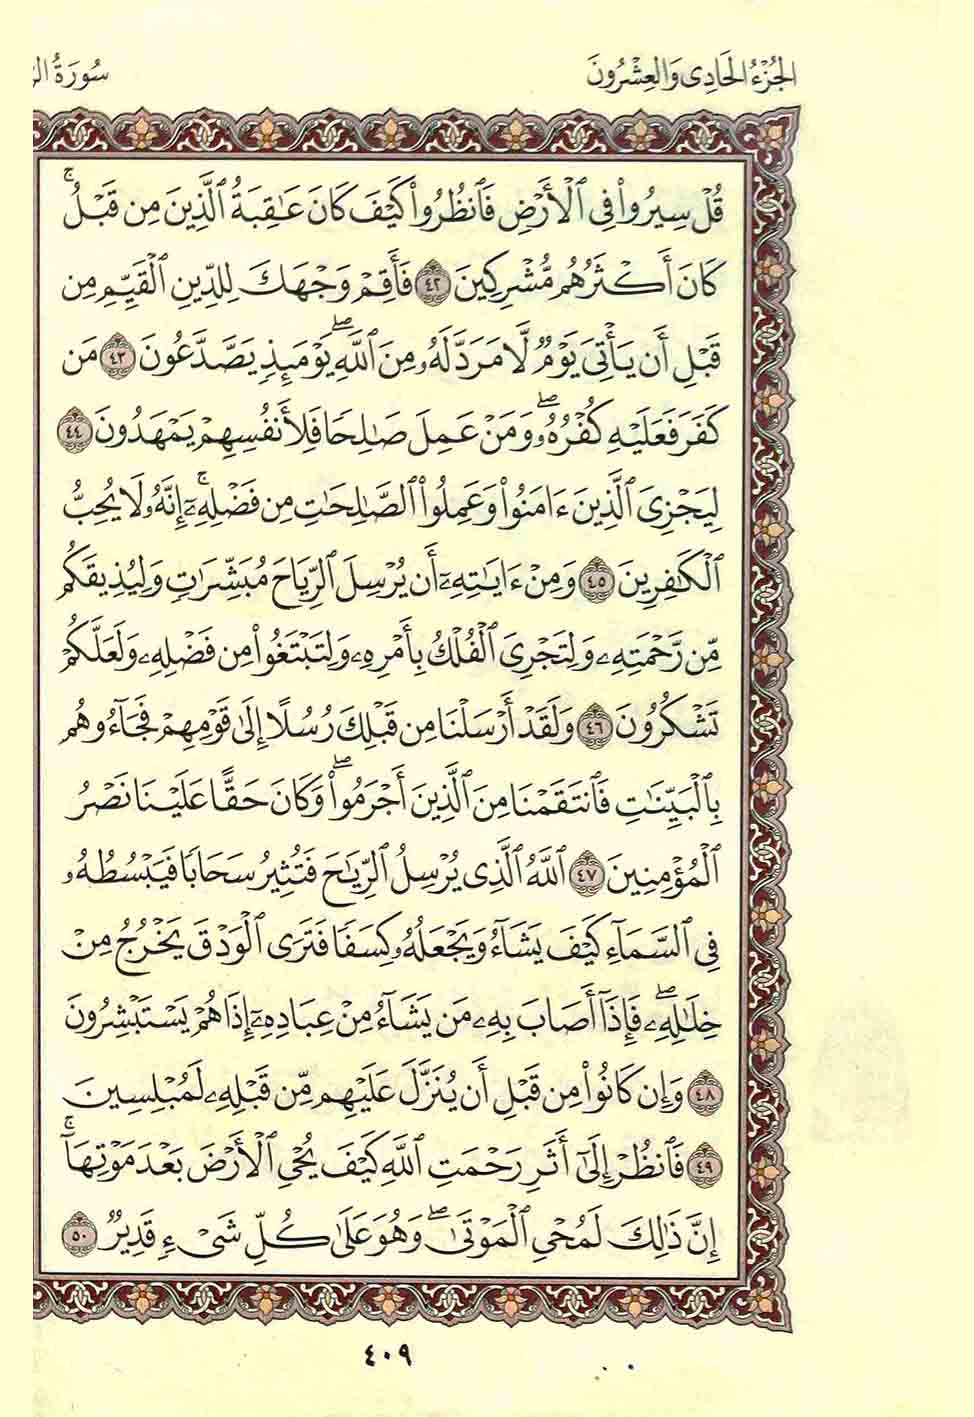 الجُزْءُ الحَادِى وَالعِشْرُونَ
سُورَةُ
قُلْ سِيرُوا۟ فِى ٱلْأَرْضِ فَٱنظُرُوا۟ كَيْفَ كَانَ عَـٰقِبَةُ ٱلَّذِينَ مِن قَبْلُ ۚ
كَانَ أَكْثَرُهُم مُّشْرِكِينَ ٤٢ فَأَقِمْ وَجْهَكَ لِلدِّينِ ٱلْقَيِّمِ مِن
قَبْلِ أَن يَأْتِىَ يَوْمٌ لَّا مَرَدَّ لَهُۥ مِنَ ٱللَّهِ ۖ يَوْمَئِذٍ يَصَّدَّعُونَ ٤٣ مَن
كَفَرَ فَعَلَيْهِ كُفْرُهُۥ ۖ وَمَنْ عَمِلَ صَـٰلِحًا فَلِأَنفُسِهِمْ يَمْهَدُونَ ٤٤
لِيَجْزِىَ ٱلَّذِينَ ءَامَنُوا۟ وَعَمِلُوا۟ ٱلصَّـٰلِحَـٰتِ مِن فَضْلِهِۦٓ ۚ إِنَّهُۥ لَا يُحِبُّ
ٱلْكَـٰفِرِينَ ٤٥ وَمِنْ ءَايَـٰتِهِۦٓ أَن يُرْسِلَ ٱلرِّيَاحَ مُبَشِّرَٰتٍ وَلِيُذِيقَكُم
مِّن رَّحْمَتِهِۦ وَلِتَجْرِىَ ٱلْفُلْكُ بِأَمْرِهِۦ وَلِتَبْتَغُوا۟ مِن فَضْلِهِۦ وَلَعَلَّكُمْ
تَشْكُرُونَ ٤٦ وَلَقَدْ أَرْسَلْنَا مِن قَبْلِكَ رُسُلًا إِلَىٰ قَوْمِهِمْ فَجَآءُوهُم
بِٱلْبَيِّنَـٰتِ فَٱنتَقَمْنَا مِنَ ٱلَّذِينَ أَجْرَمُوا۟ ۖ وَكَانَ حَقًّا عَلَيْنَا نَصْرُ
ٱلْمُؤْمِنِينَ ٤٧ ٱللَّهُ ٱلَّذِى يُرْسِلُ ٱلرِّيَـٰحَ فَتُثِيرُ سَحَابًا فَيَبْسُطُهُۥ
فِى ٱلسَّمَآءِ كَيْفَ يَشَآءُ وَيَجْعَلُهُۥ كِسَفًا فَتَرَى ٱلْوَدْقَ يَخْرُجُ مِنْ
خِلَـٰلِهِۦ ۖ فَإِذَآ أَصَابَ بِهِۦ مَن يَشَآءُ مِنْ عِبَادِهِۦٓ إِذَا هُمْ يَسْتَبْشِرُونَ
٤٨ وَإِن كَانُوا۟ مِن قَبْلِ أَن يُنَزَّلَ عَلَيْهِم مِّن قَبْلِهِۦ لَمُبْلِسِينَ
٤٩ فَٱنظُرْ إِلَىٰٓ أَثَرِ رَحْمَتِ ٱللَّهِ كَيْفَ يُحْىِ ٱلْأَرْضَ بَعْدَ مَوْتِهَآ ۚ
إِنَّ ذَٰلِكَ لَمُحْىِ ٱلْمَوْتَىٰ ۖ وَهُوَ عَلَىٰ كُلِّ شَىْءٍ قَدِيرٌ ٥٠
٤٠٩